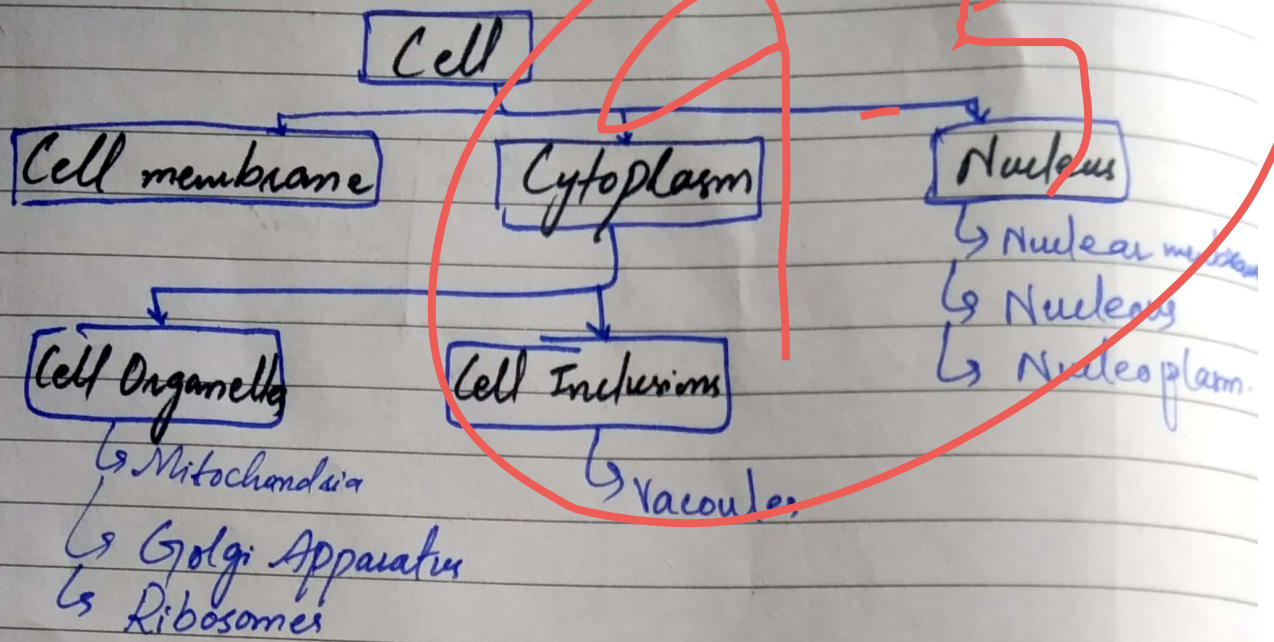 Cell
Cell membrane
Cytoplasm
Nucleus
Nuclear
Nucleus
Nucleoplasm.
Cell Organells
Cell Inclusions
Mitochandria
Vacoules
Golgi Apparatus
Ribosomes